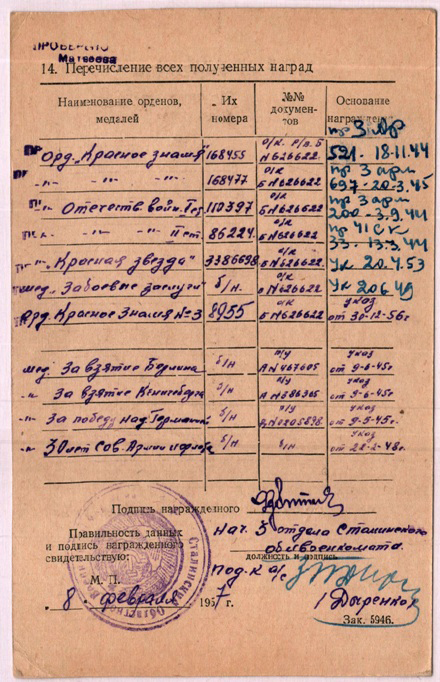 ПРОВЕРЕНО
Матвеева
14. Перечисление всех полученных наград
Наименование орденов, медалей Их номера №№ документов Основание награждения
пр 3 Апр
Орд. „Красное знамя" 168455 о/к Б №626622 521- 18.11.44
-"- -"- 168477 о/к Б №626622 пр 3 арм 697-20-3.45
-"- Отечеств войн. I ст 110397 о/к Б №626622 пр 3 арм 200-3.9.44
-"- -"- -"- II ст. 86224 о/к Б №626622 пр 41 СК 33-13.3.44
-"- „Красная звезда" 3386698 о/к Б №626622 Ук 20.4.53
мед „За боевые заслуги" б/н. о/к Б №626622 Ук 20 6 49
Орд. Красное Знамя №3 8955 о/к Б №626622 указ от 30-12-56г
мед. За взятие Берлина б/н п/у А №467605 указ от 9-6-45г
-"- За взятие Кенигсберга б/н п/у указ от 9-6-45г
-"- За победу над Германией б/н п/у указ от 9-5-45г
-"- 30 лет Сов. Армии и флота б/н б/н указ от 22-2-48г.
Подпись награжденного
Правильность данных
и подпись награжденного
свидетельствую:
Нач. 3 отдела Сталинского
облвоенкомата.
должность и подпись
М. П.
Под-к а/с
8 февраля 1957 г.
/ Дыренков
Зак. 5946.